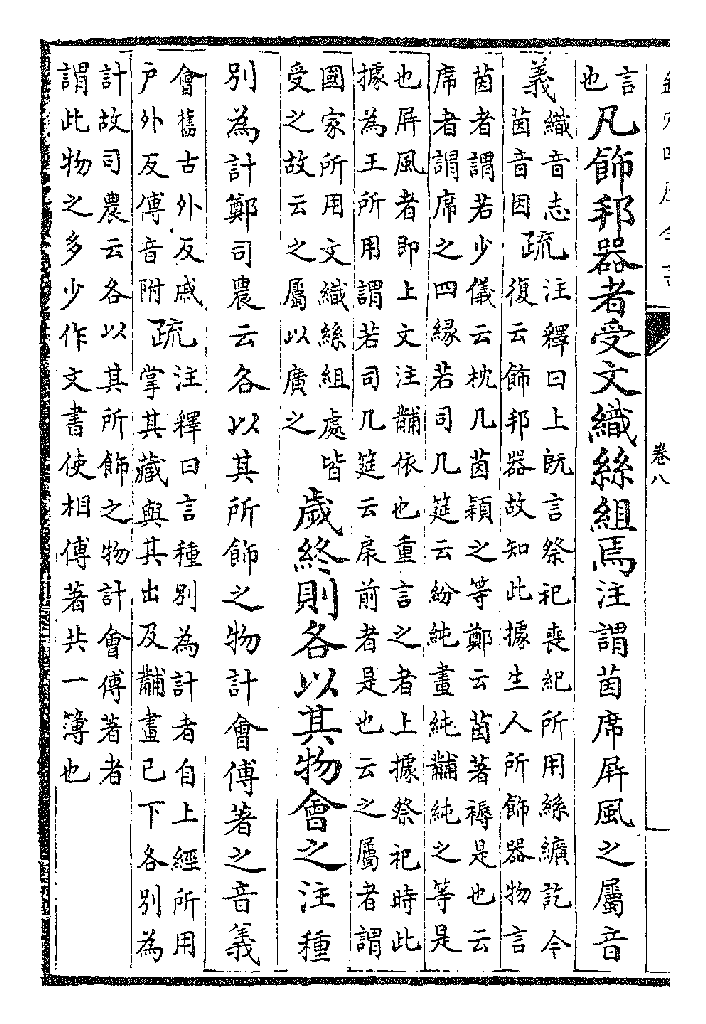 卷八
言也凡飾邦器者受文織絲組焉注謂茵席屏風之屬音
義織音志茵音因疏注釋曰上既言祭祀喪紀所用絲纊訖今
復云飾邦器故知此據生人所飾器物言
茵者謂若少儀云枕几茵穎之等鄭云茵著褥是也云
席者謂席之四緣若司几筵云紛純畫純黼純之等是
也屏風者即上文注黼依也重言之者上據祭祀時此
據為王所用謂若司几筵云扆前者是也云之屬者謂
國家所用文織絲組處皆
受之故云之屬以廣之歲終則各以其物會之注種
別為計鄭司農云各以其所飾之物計會傅著之音義
會舊古外反戚戶外反傅音附疏注釋曰言種別為計者自上經所用
掌其藏與其出及黼畫已下各別為
計故司農云各以其所飾之物計會傅著者
謂此物之多少作文書使相傅著共一簿也